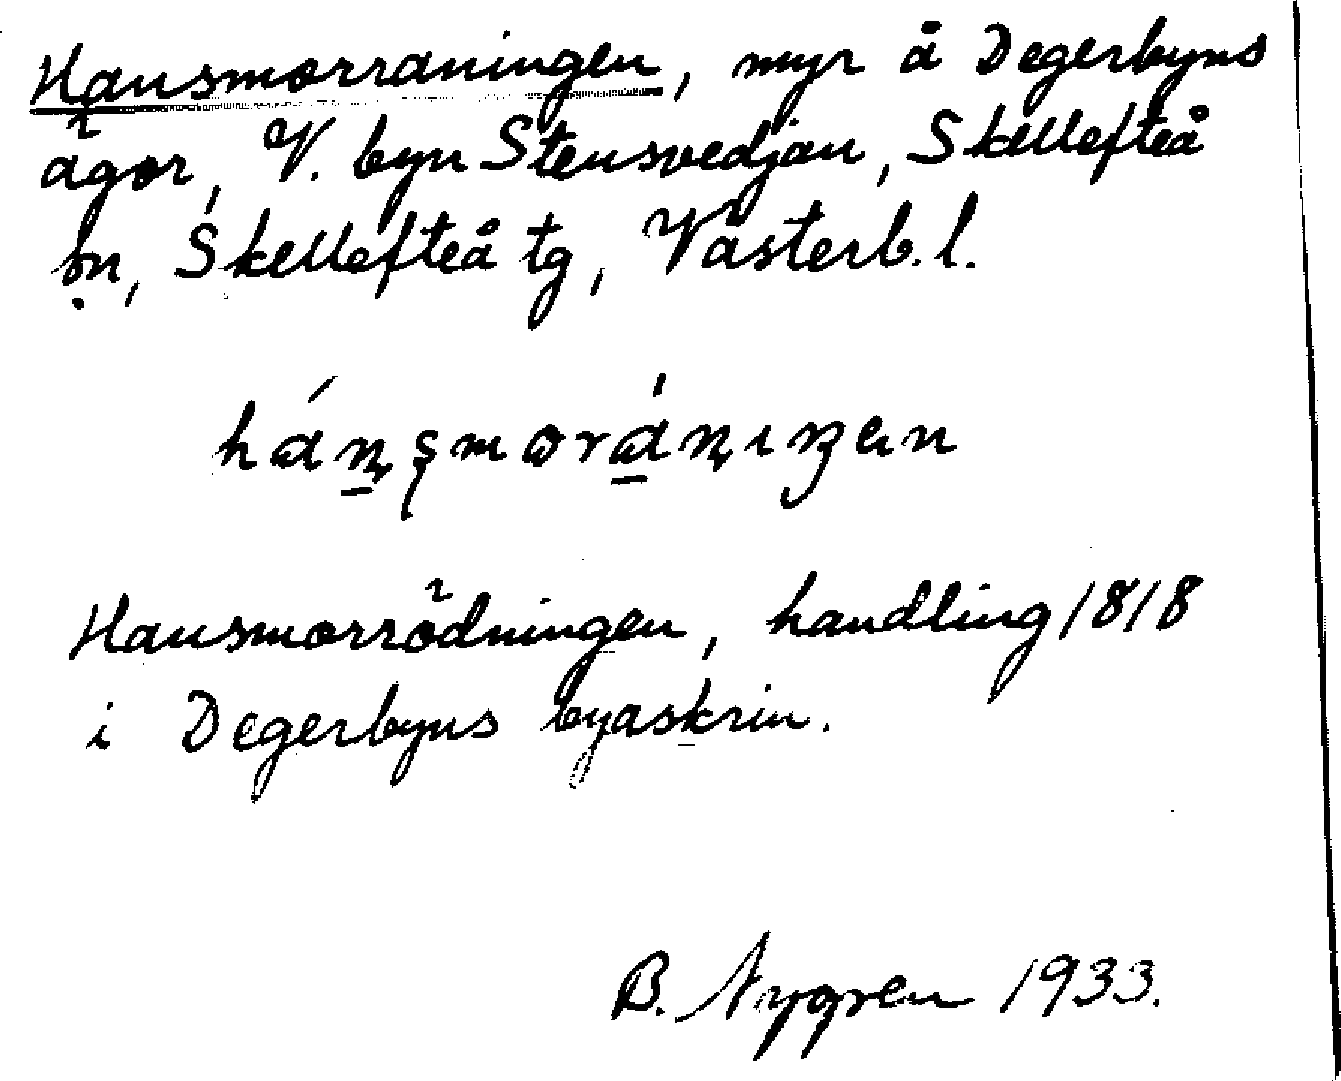 Hansmorraningen, myr å Degerbyns
ägor, V. byn Stensvedjan, Skellefteå
sn, Skellefteå tg, Västerb. l.
hánsmoráningen
Hansmorrödningen, handling 1818
i Degerbyns byaskrin.
B. Nygren 1933.